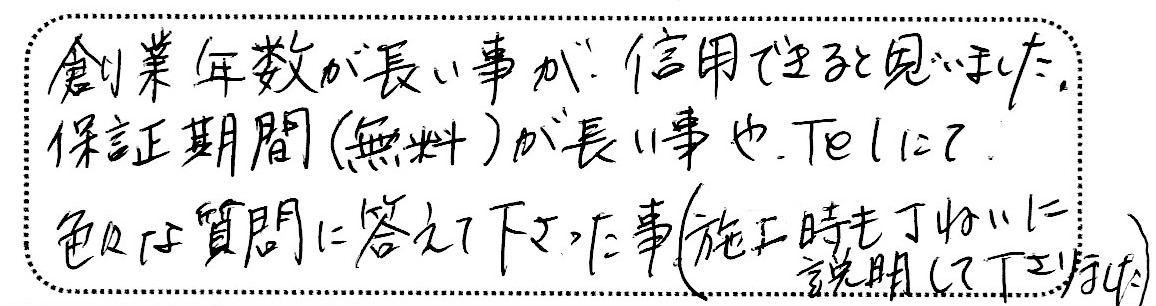 創業年数が長い事が、信用できると思いました。
保証期間(無料)が長い事や、Telにて、
色々な質問に答えて下さった事(施工時も丁ねいに
説明して下さいました)